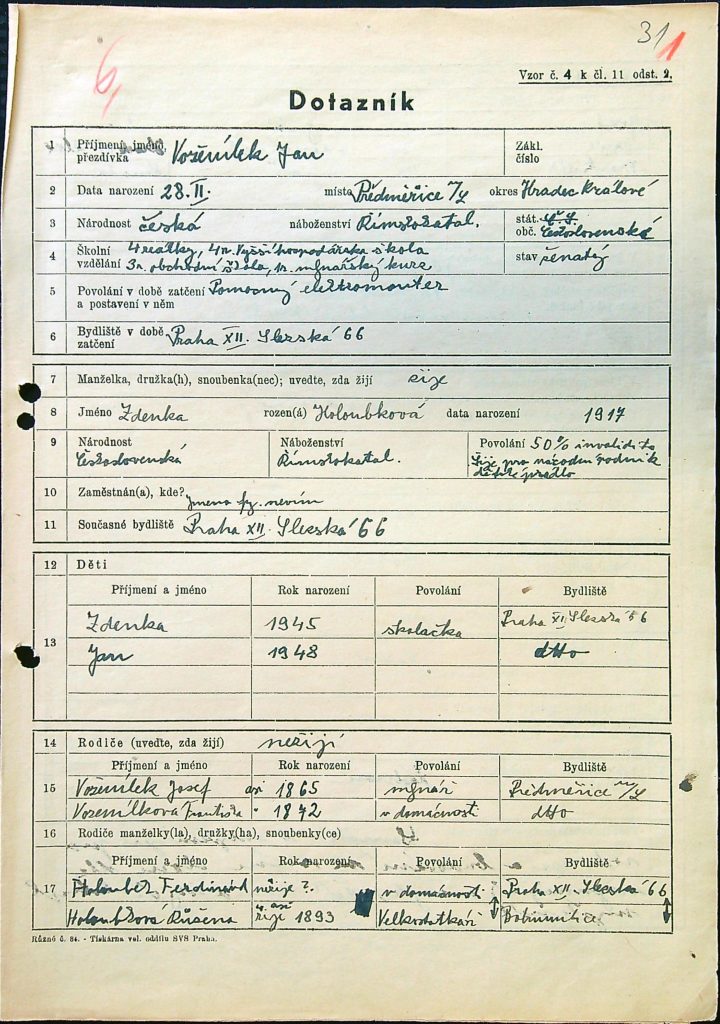 31 1
6,
Vzor č. 4 k čl. 11 odst. 2.
Dotazník
1 Příjmení, jméno, přezdívka Voženílek Jan Zákl. číslo
2 Data narození 28. II. místo Předměřice n/L okres Hradec Králové
3 Národnost česká náboženství Římskokatol. stát. obč. Č.S. Československé
4 Školní vzdělání 4 reálky, 4 r. Vyšší hospodářská škola
3 r. obchodní škola, 1 r. mlynářský kurz stav ženatý
5 Povolání v době zatčení a postavení v něm Pomocný elektromonter
6 Bydliště v době zatčení Praha XII. Slezská 66
7 Manželka, družka(h), snoubenka(nec); uveďte, zda žijí žije
8 Jméno Zdenka rozen(á) Holoubková data narození 1917
9 Národnost Náboženství Povolání 50% invalidita
Československá Římskokatol. šije pro národní podnik
dětské prádlo
10 Zaměstnán(a), kde? jmeno fy. nevím
11 Současné bydliště Praha XII. Slezská 66
12 Děti
Příjmení a jméno Rok narození Povolání Bydliště
13 Zdenka 1945 školačka Praha XII. Slezská 66
Jan 1948 dtto
14 Rodiče (uveďte, zda žijí) nežijí
Příjmení a jméno Rok narození Povolání Bydliště
15 Voženílek Josef asi 1865 mlynář Předměřice n/L
Voženílková Františka " 1872 v domácnosti dtto
16 Rodiče manželky(la), družky(ha), snoubenky(ce)
Příjmení a jméno Rok narození Povolání Bydliště
17 Holoubek Ferdinand nežije ?. v domácnosti Praha XII. Slezská 66
Holoubková Růžena žije asi 1893 Velkostatkář
Různé č. 84. - Tiskárna vel. oddílu SVS Praha.